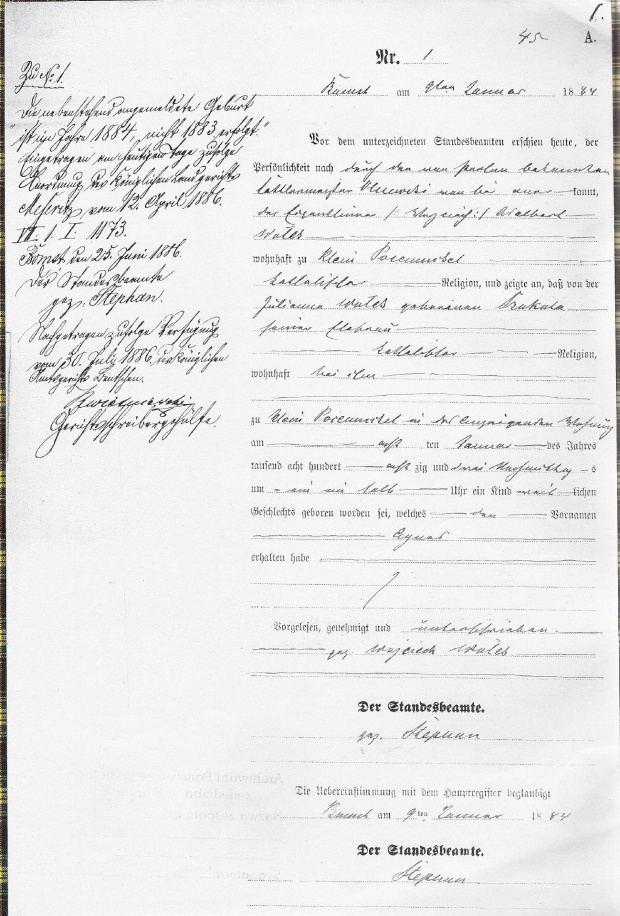 1.
45
A.
Nr. 1.
Bomst am 9ten Januar 1884
Vor dem unterzeichneten Standesbeamten erschien heute, der
Persönlichkeit nach durch den von Person bekannten
Sattlermeister von hier aner kannt,
der Eigenthümer / Wojciech :/ Adalbert
Wolek
wohnhaft zu Klein Posemukel
katholischer Religion, und zeigte an, daß von der
Julianna Wolek geborenen
seiner Ehefrau
katholischer Religion,
wohnhaft bei ihm
zu Klein Posemukel in der Wohnung
am acht ten Januar des Jahres
tausend acht hundert acht zig und drei Nachmittag s
um ein ein halb Uhr ein Kind weib lichen
Geschlechts geboren worden sei, welches den Vornamen
Agnes
erhalten habe
Vorgelesen, genehmigt und unterschrieben.
gez. Wojciech Wolek
Der Standesbeamte.
gez. Stephan
Die Uebereinstimmung mit dem Hauptregister beglaubigt
Bomst am 9ten Januar 1884
Der Standesbeamte.
Stephan
Zu No 1.
Die nebenstehend angemeldete Geburt
"ist im Jahre 1884, nicht 1883 erfolgt."
Eingetragen am heutigen Tage zufolge
Anordnung des Königlichen Landgerichts
Meseritz vom 12. April 1886.
VI. 1. I. 1173.
Bomst den 25. Juni 1886.
Der Standesbeamte
gez. Stephan.
Nachgetragen zufolge Verfügung
vom 30. Juli 1886 des Königlichen
Amtsgerichts Bentschen.
Gerichtsschreibergehülfe.